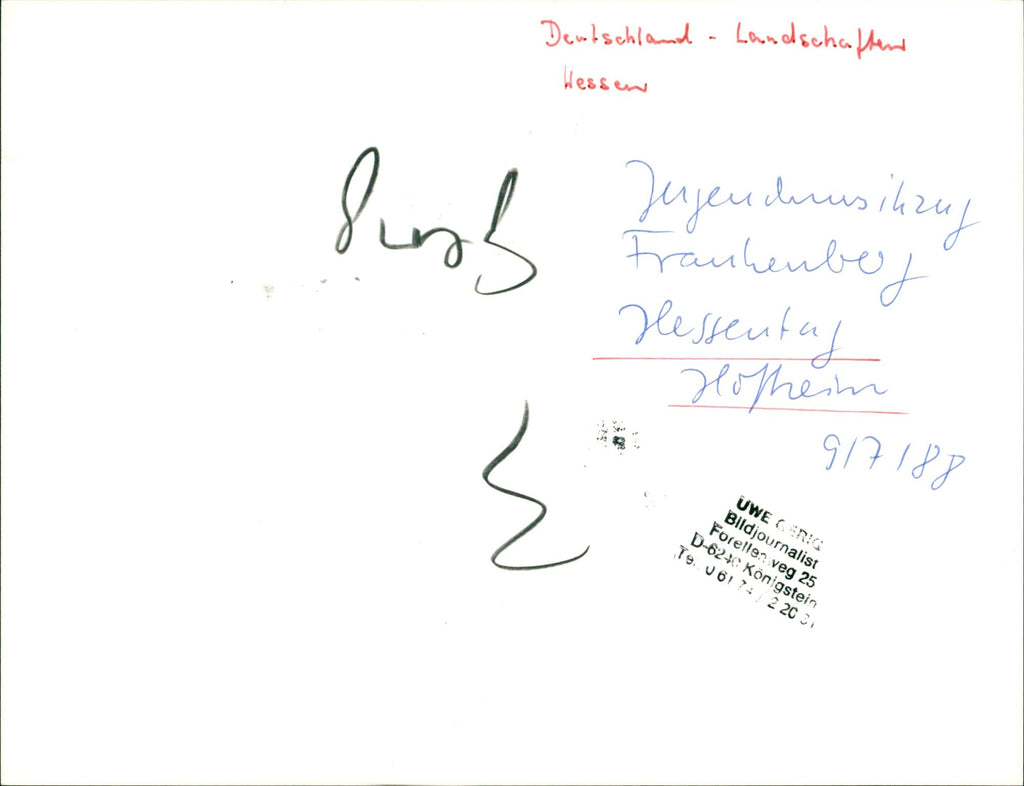 Deutschland - Landschaften
Hessen
Jugendmusikzug
Frankenberg
Hessentag
Hofheim
9/7/88
UWE GERIG
Bildjournalist
Forellenweg 25
D-6240 Königstein
Tel. 0 61 74 / 2 20